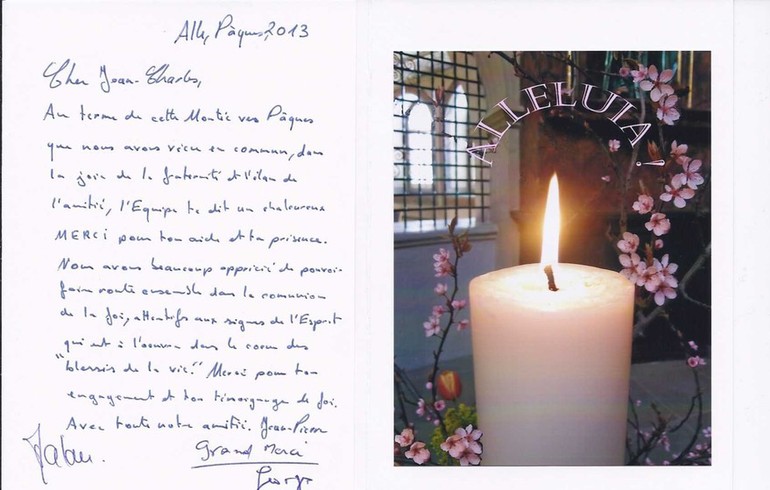 Alle, Pâques, 2013
Cher Jean-Charles,
Au terme de cette Montée vers Pâques
que nous avons vécu en commun, dans
la joie de la fraternité et l'élan de
l'amitié, l'Equipe te dit un chaleureux
MERCI pour ton aide et ta présence.
Nous avons beaucoup apprécié de pouvoir
faire route ensemble dans la communion
de la foi, attentifs aux signes de l'Esprit
qui est à l'oeuvre dans le coeur des
"blessés de la vie". Merci pour ton
engagement et ton témoignage de foi.
Avec toute notre amitié. Jean-Pierre
Grand Merci
George
ALLELUIA !